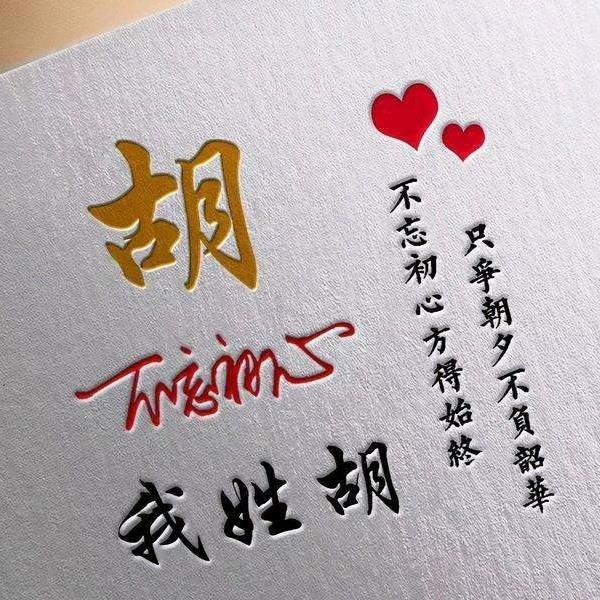 胡
不忘初心
我姓胡
不忘初心方得始終
只爭朝夕不負韶華